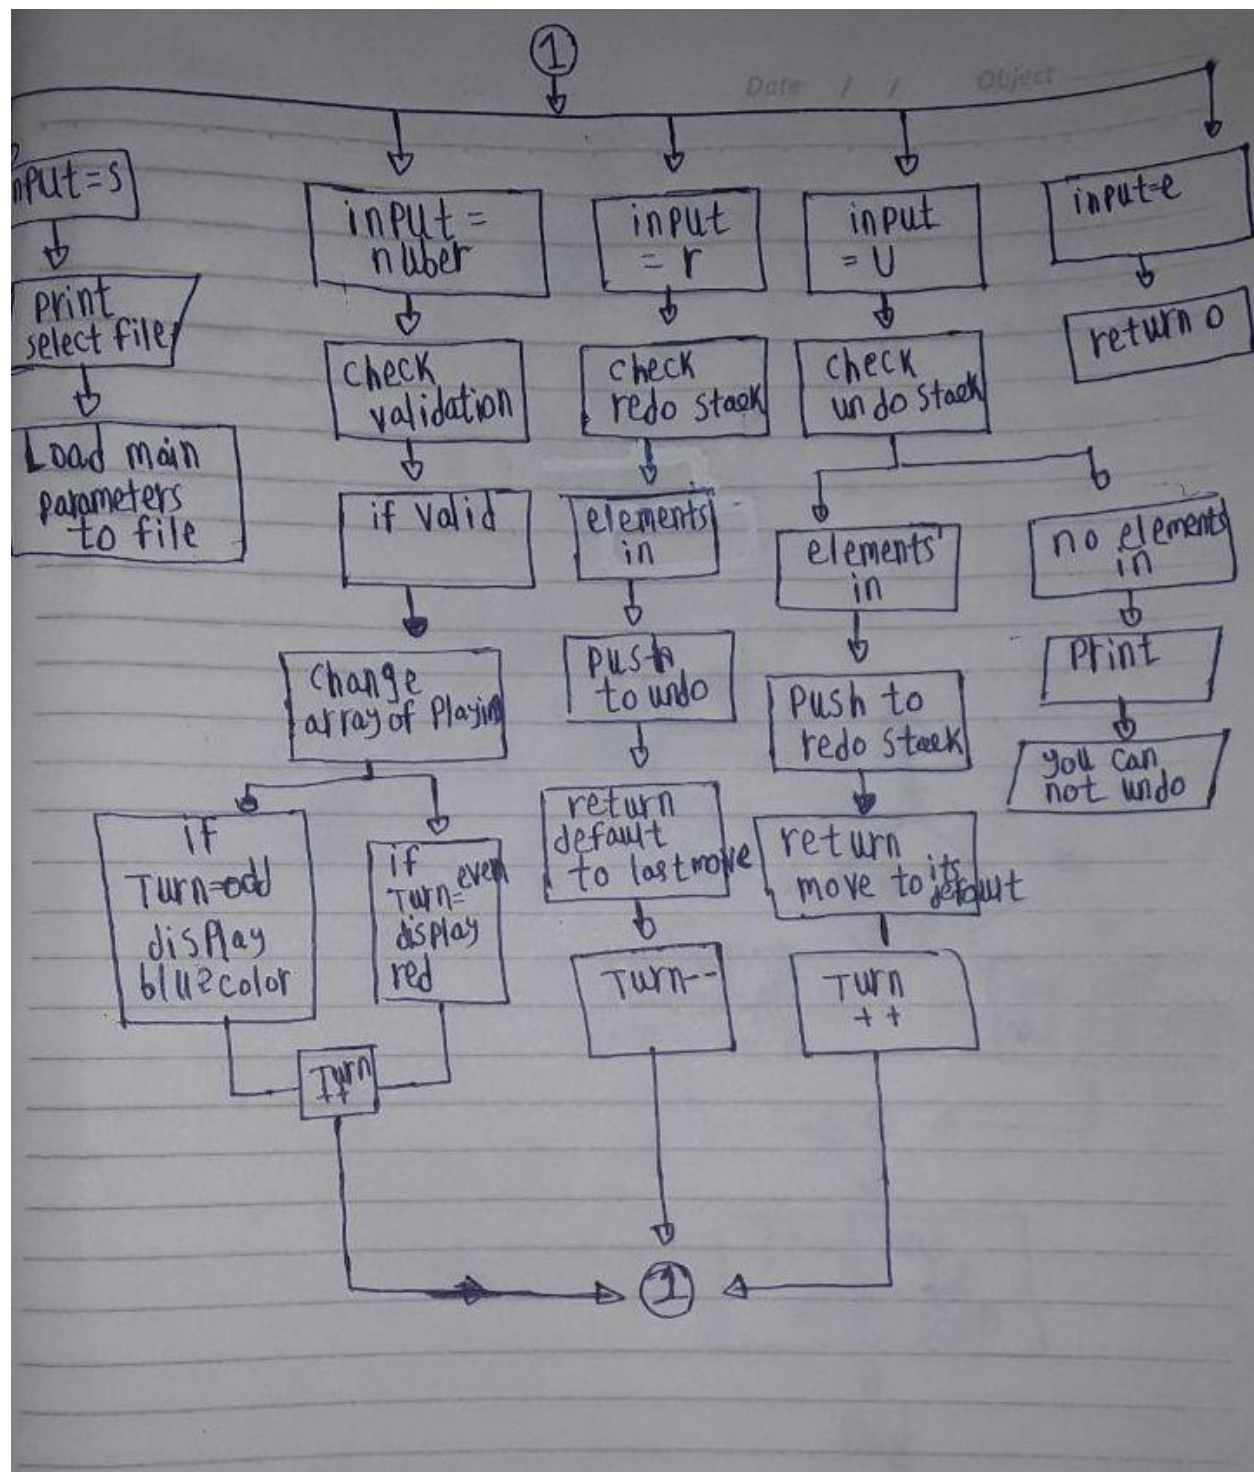 1
Date / / Object
nput=s
print
select file
Load main
parameters
to file
input =
nuber
check
validation
if valid
change
array of Playin
if
Turn=odd
display
blue color
if
Turn= even
display
red
Turn
++
input
= r
check
redo stack
elements
in
push
to undo
return
default
to last move
Turn--
input
= U
check
undo stack
elements
in
push to
redo stack
return
move to its
default
Turn
++
no elements
in
Print
you can
not undo
input=e
return 0
1